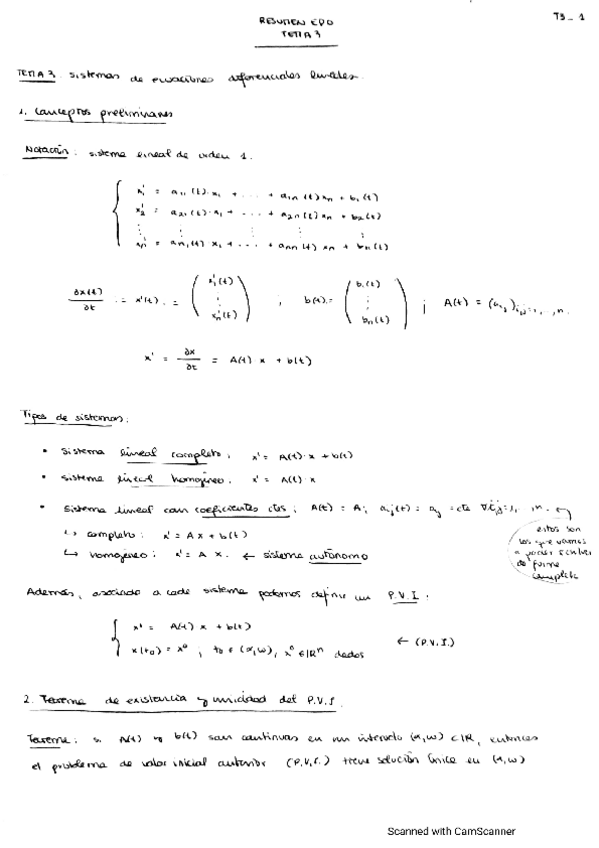 RESUMEN EDO
TEMA 3
T3_1
TEMA 3. Sistemas de ecuaciones diferenciales lineales.
1. Conceptos preliminares
Notación: sistema lineal de orden 1.
x₁' = a₁₁(t)·x₁ + ... + a₁n(t)xn + b₁(t)
x₂' = a₂₁(t)·x₁ + ... + a₂n(t)xn + b₂(t)
⋮ ⋮ ⋮ ⋮
xn' = an₁(t) x₁ + ... + ann(t) xn + bn(t)
∂x(t)/∂t := x'(t) := (x₁'(t) ⋮ xn'(t)) ; b(t) = (b₁(t) ⋮ bn(t)) ; A(t) = (aij)i,j=1,...,n.
x' = ∂x/∂t = A(t) x + b(t)
Tipos de sistemas:
• Sistema lineal completo: x' = A(t)·x + b(t)
• Sistema lineal homogéneo: x' = A(t)·x
• Sistema lineal con coeficientes ctes: A(t) = A; aij(t) = aij = cte ∀i,j=1,...n.
↳ completo: x' = A x + b(t)
↳ homogéneo: x' = A x. ← sistema autónomo
estos son
los que vamos
a poder resolver
de forma
completa
Además, asociado a cada sistema podemos definir un P.V.I:
x' = A(t) x + b(t)
x(t₀) = x⁰ ; t₀ ∈ (α,ω), x⁰ ∈ ℝⁿ dados
← (P.V.I.)
2. Teorema de existencia y unicidad del P.V.I.
Teorema: si A(t) y b(t) son continuas en un intervalo (α,ω) ⊂ ℝ, entonces
el problema de valor inicial anterior (P.V.I.) tiene solución única en (α,ω)
Scanned with CamScanner